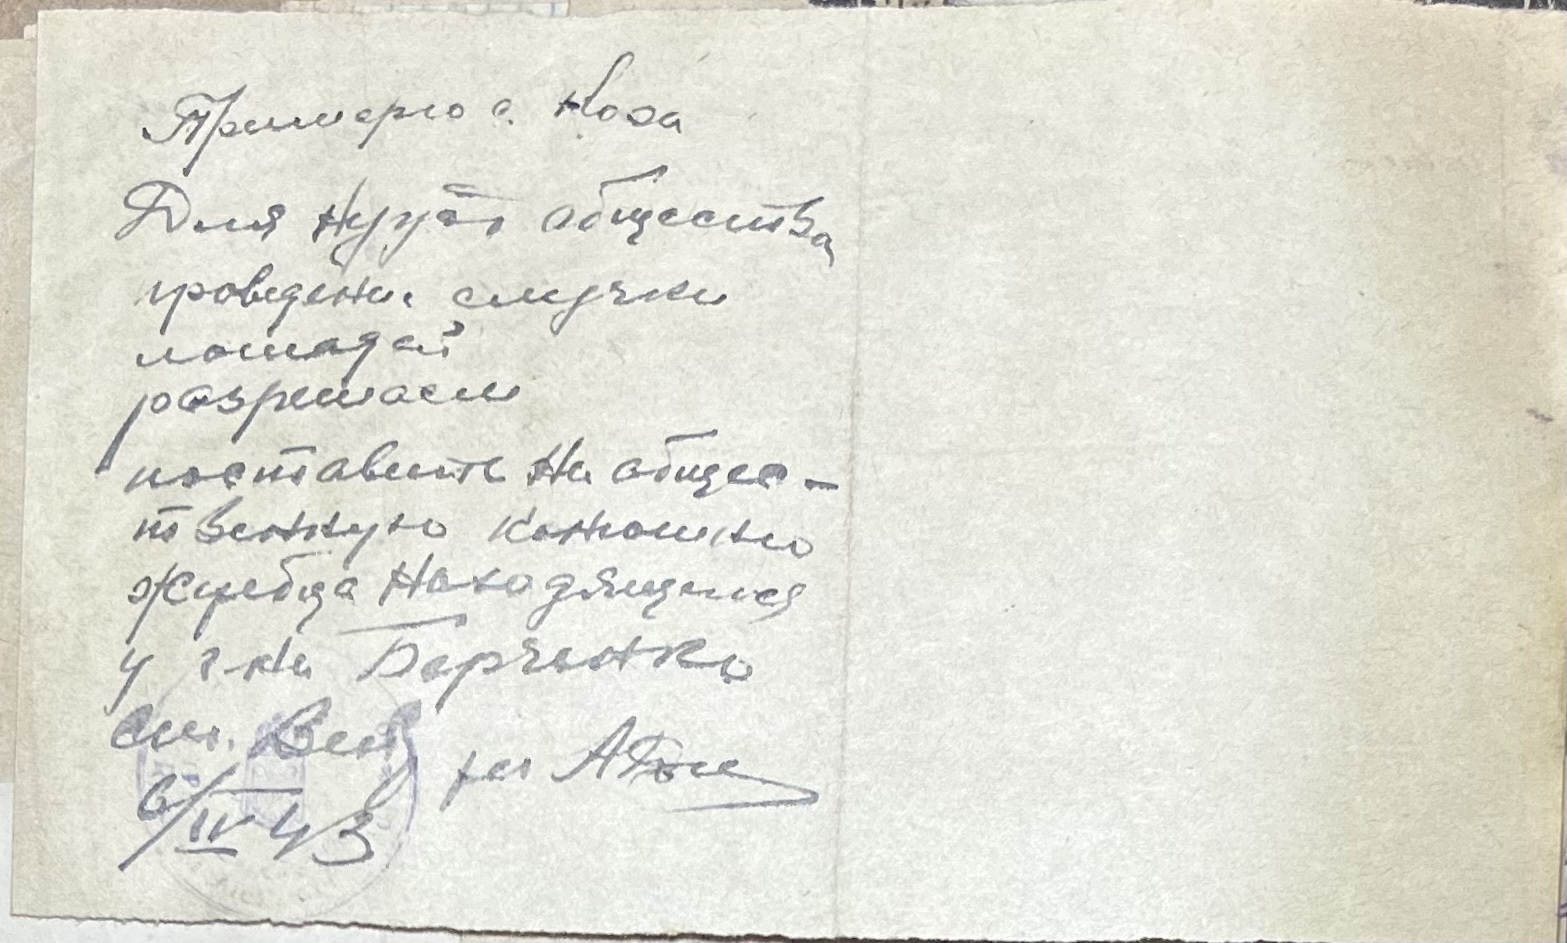 Для нужд общества
проведения случки
лошадей
разрешаем
поставить на общес-
твенную конюшню
жеребца находящегося
у г-на Борченко
6/IV 43